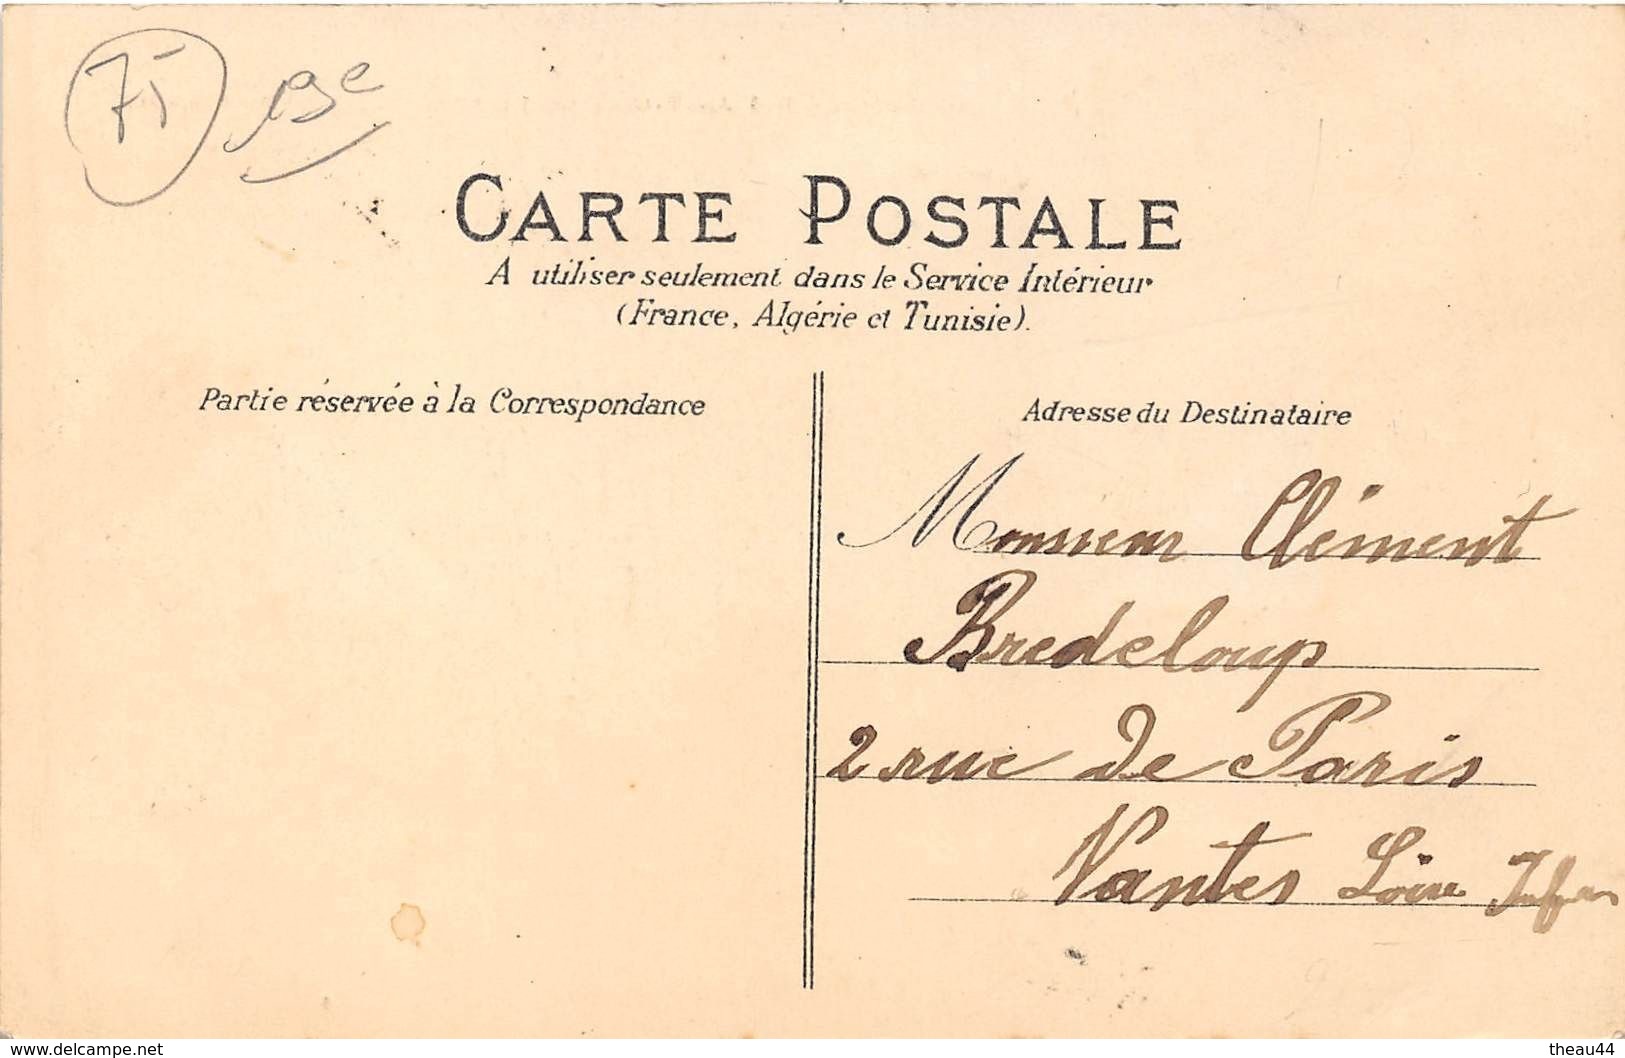 75 19e
CARTE POSTALE
A utiliser seulement dans le Service Intérieur
(France, Algérie et Tunisie).
Partie réservée à la Correspondance
Adresse du Destinataire
Monsieur Clément
Bredeloup
2 rue de Paris
Nantes Loire Infre
www.delcampe.net
theau44